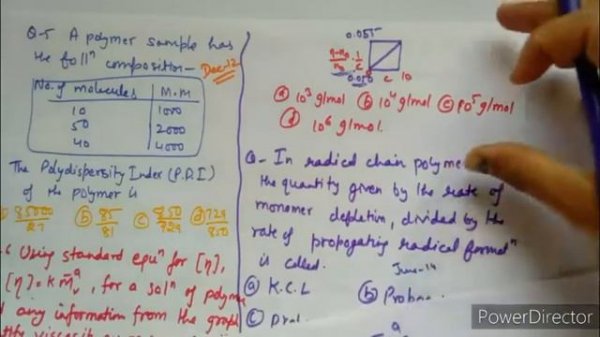 Q-5 A polymer sample has
the follⁿ composition - Dec-12
No. of molecules M.M
10 1000
50 2000
40 4000
The Polydispersity Index (P.D.I)
of the polymer is
85000/27 (b) 85/81 (c) 850/729 (d) 729/850
Using standard equⁿ for [η],
[η] = K M̄ᵥᵃ, for a solⁿ of
any information from the graph
0.055
η-η₀/η₀ · 1/C
0.050 C 10
(a) 10³ g/mol (b) 10⁴ g/mol (c) 10⁵ g/mol
(d) 10⁶ g/mol.
Q- In radical chain
the quantity given by the rate of
monomer depletion, divided by the
rate of propogating radical formⁿ
is called.
June-14
(a) K.C.L (b)
(c)
PowerDirector